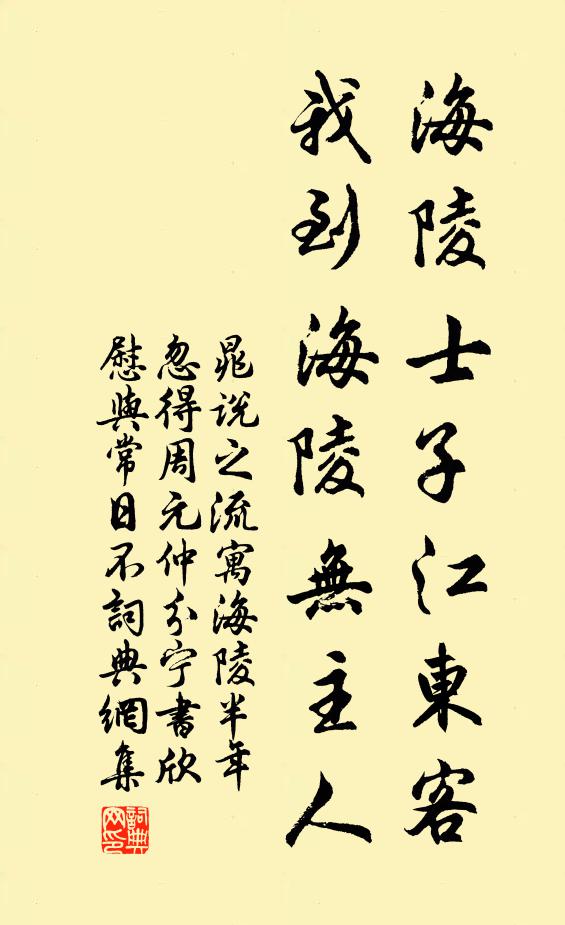 海陵士子江東客
我到海陵無主人
晁說之流寓海陵半年
忽得周元仲分宁書欣
慰與常日不詞典網集
詞典
网印